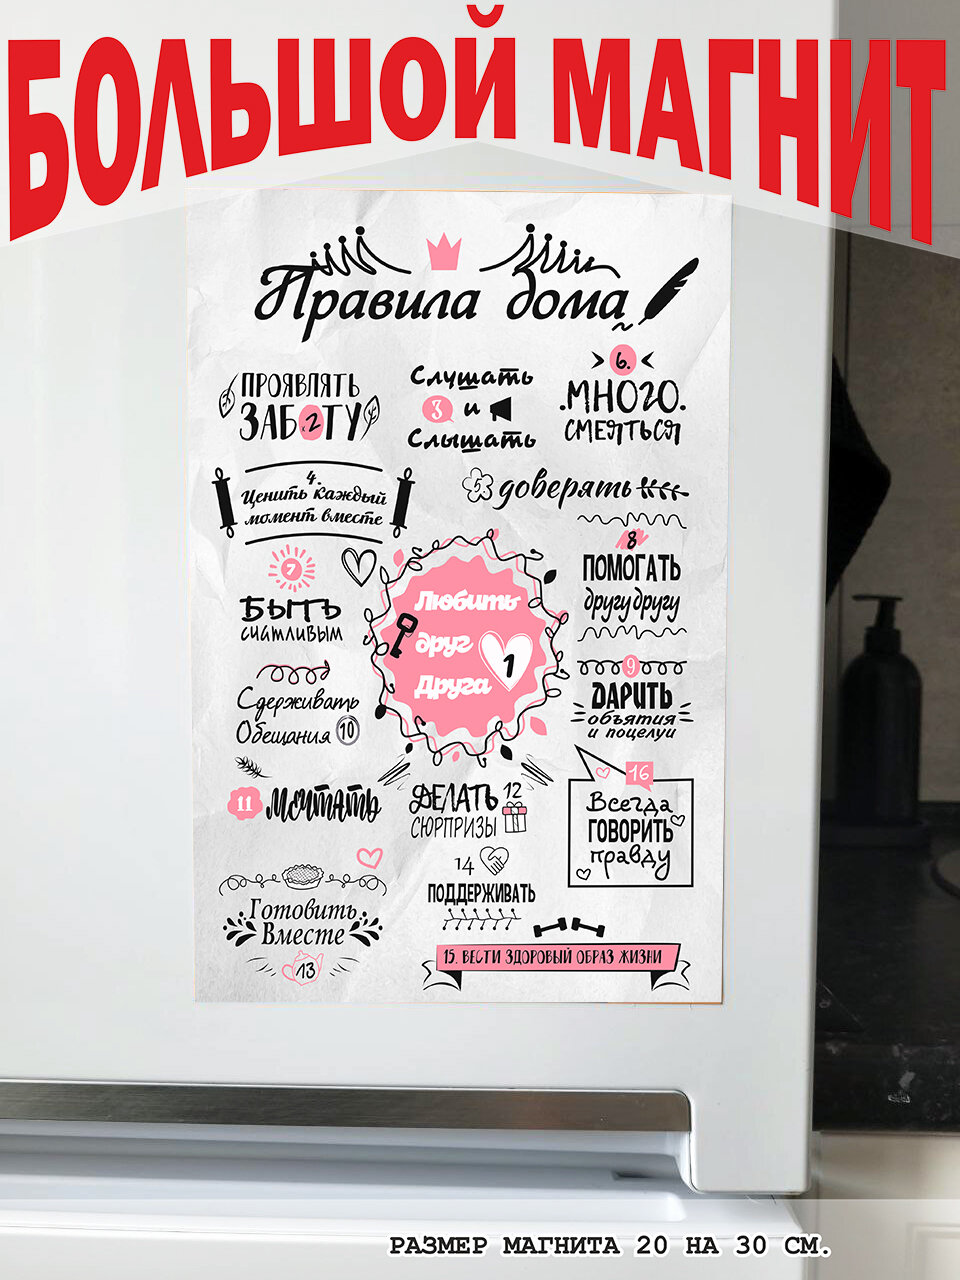 БОЛЬШОЙ МАГНИТ
Правила дома
ПРОЯВЛЯТЬ
ЗАБОТУ
2
Слушать
3 и
Слышать
6.
МНОГО
СМЕЯТЬСЯ
4.
Ценить каждый
момент вместе
5 доверять
7
БЫТЬ
счастливым
8
ПОМОГАТЬ
другу другу
Любить
друг
Друга
1
9
ДАРИТЬ
объятия
и поцелуи
Сдерживать
Обещания 10
11 Мечтать
ДЕЛАТЬ 12
СЮРПРИЗЫ
16
Всегда
ГОВОРИТЬ
правду
14
ПОДДЕРЖИВАТЬ
Готовить
Вместе
13
15. ВЕСТИ ЗДОРОВЫЙ ОБРАЗ ЖИЗНИ
РАЗМЕР МАГНИТА 20 НА 30 СМ.